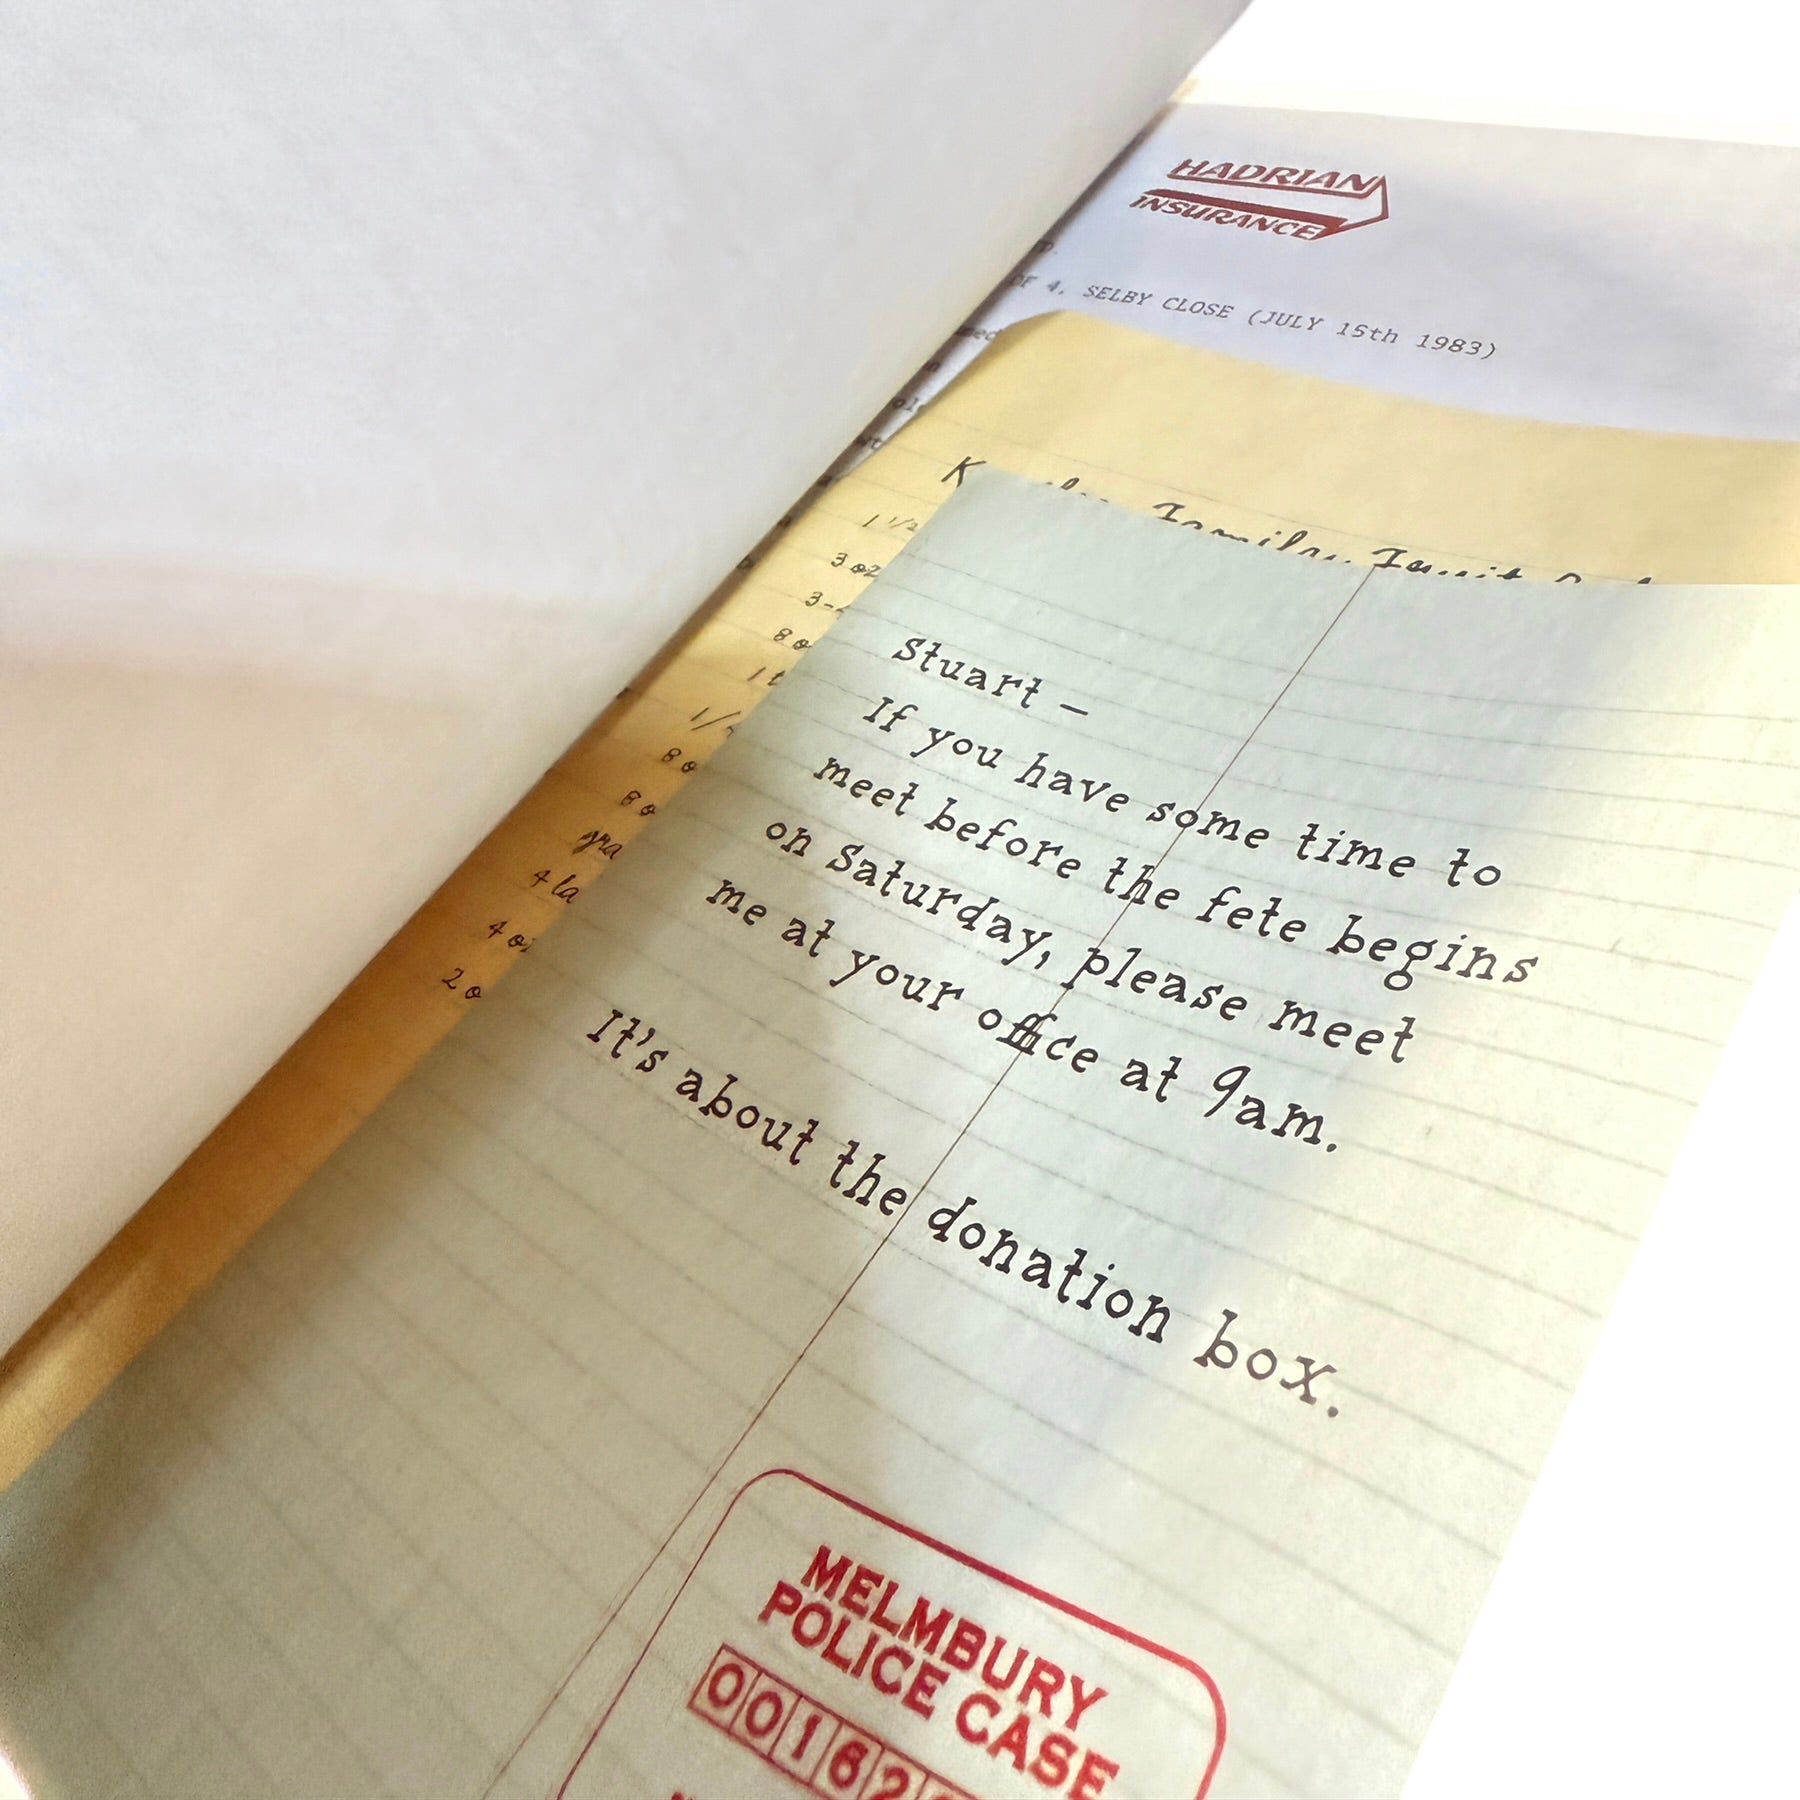 HADRIAN
INSURANCE
OF 4, SELBY CLOSE (JULY 15th 1983)
Family Fruit
1 1/2
3 oz
3-
8 o
1 t
1/
8 o
8 o
gra
4 la
4 oz
2 o
Stuart –
If you have some time to
meet before the fete begins
on Saturday, please meet
me at your office at 9am.
It's about the donation box.
MELMBURY
POLICE CASE
00162